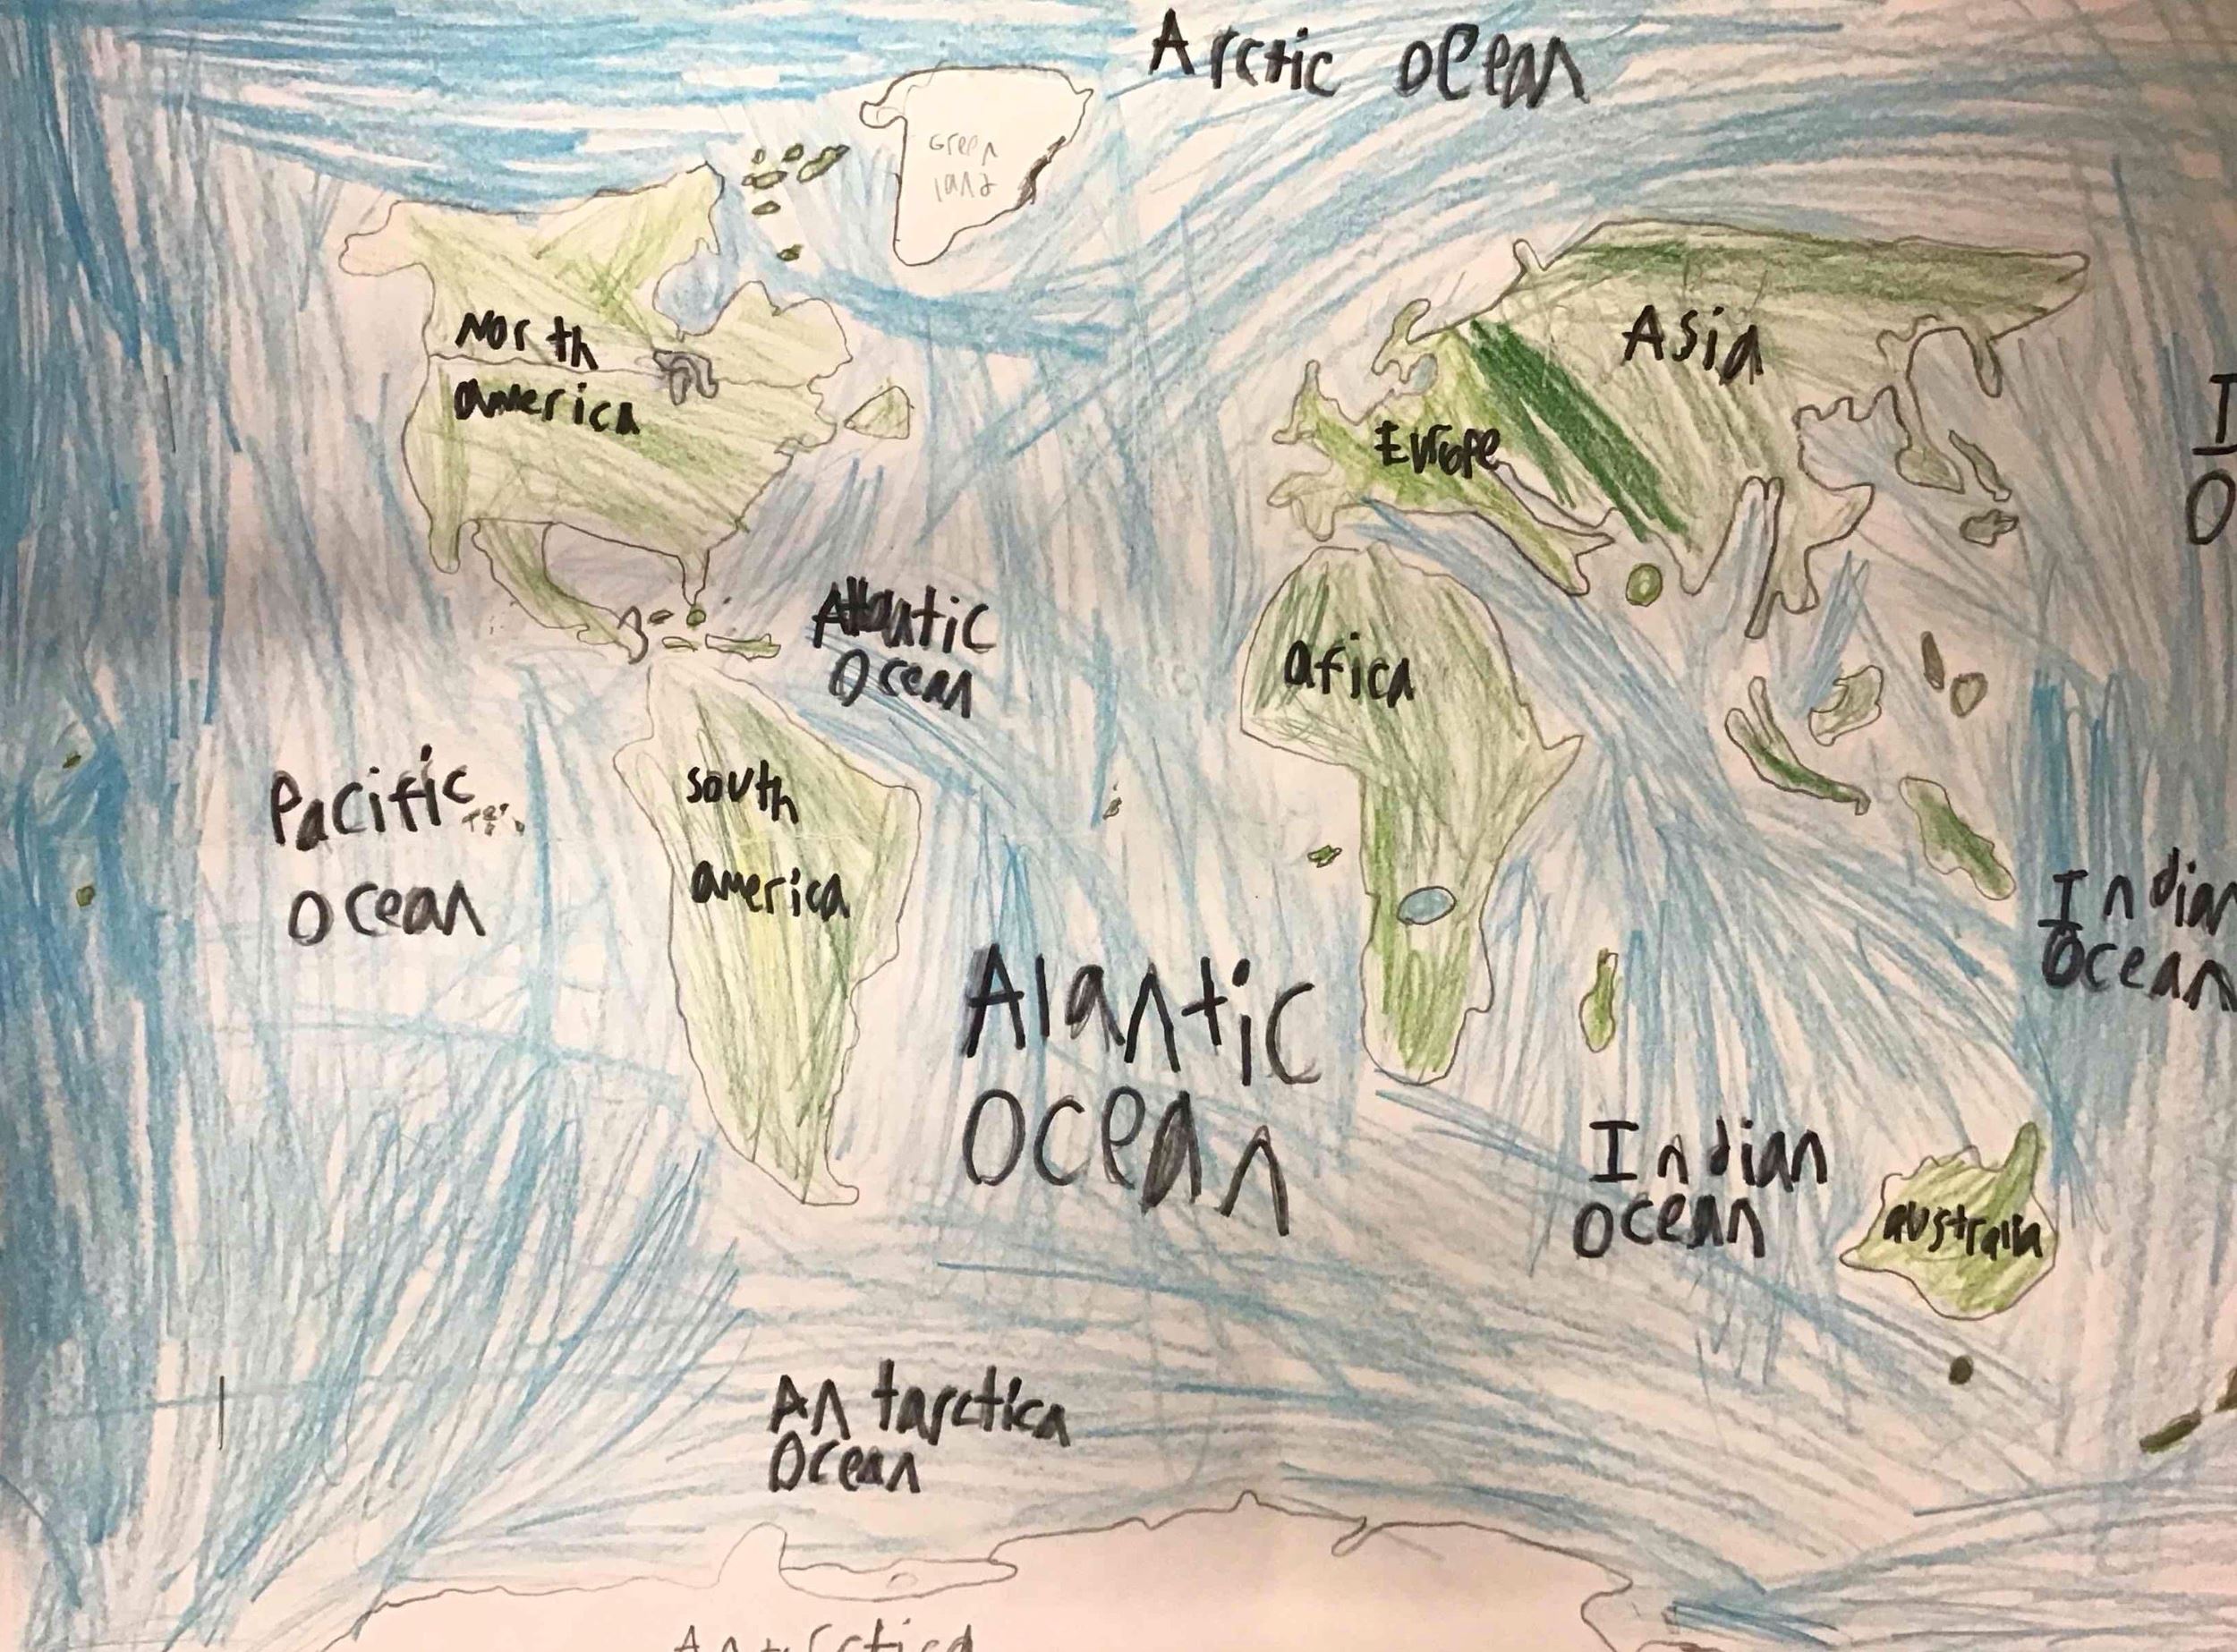 Arctic ocean
Green
land
North
america
Asia
Europe
I
O
Atlantic
Ocean
afica
Pacific
ocean
south
america
Indian
Ocean
Alantic
ocean
Indian
ocean
australia
Antarctica
Ocean
Antarctica